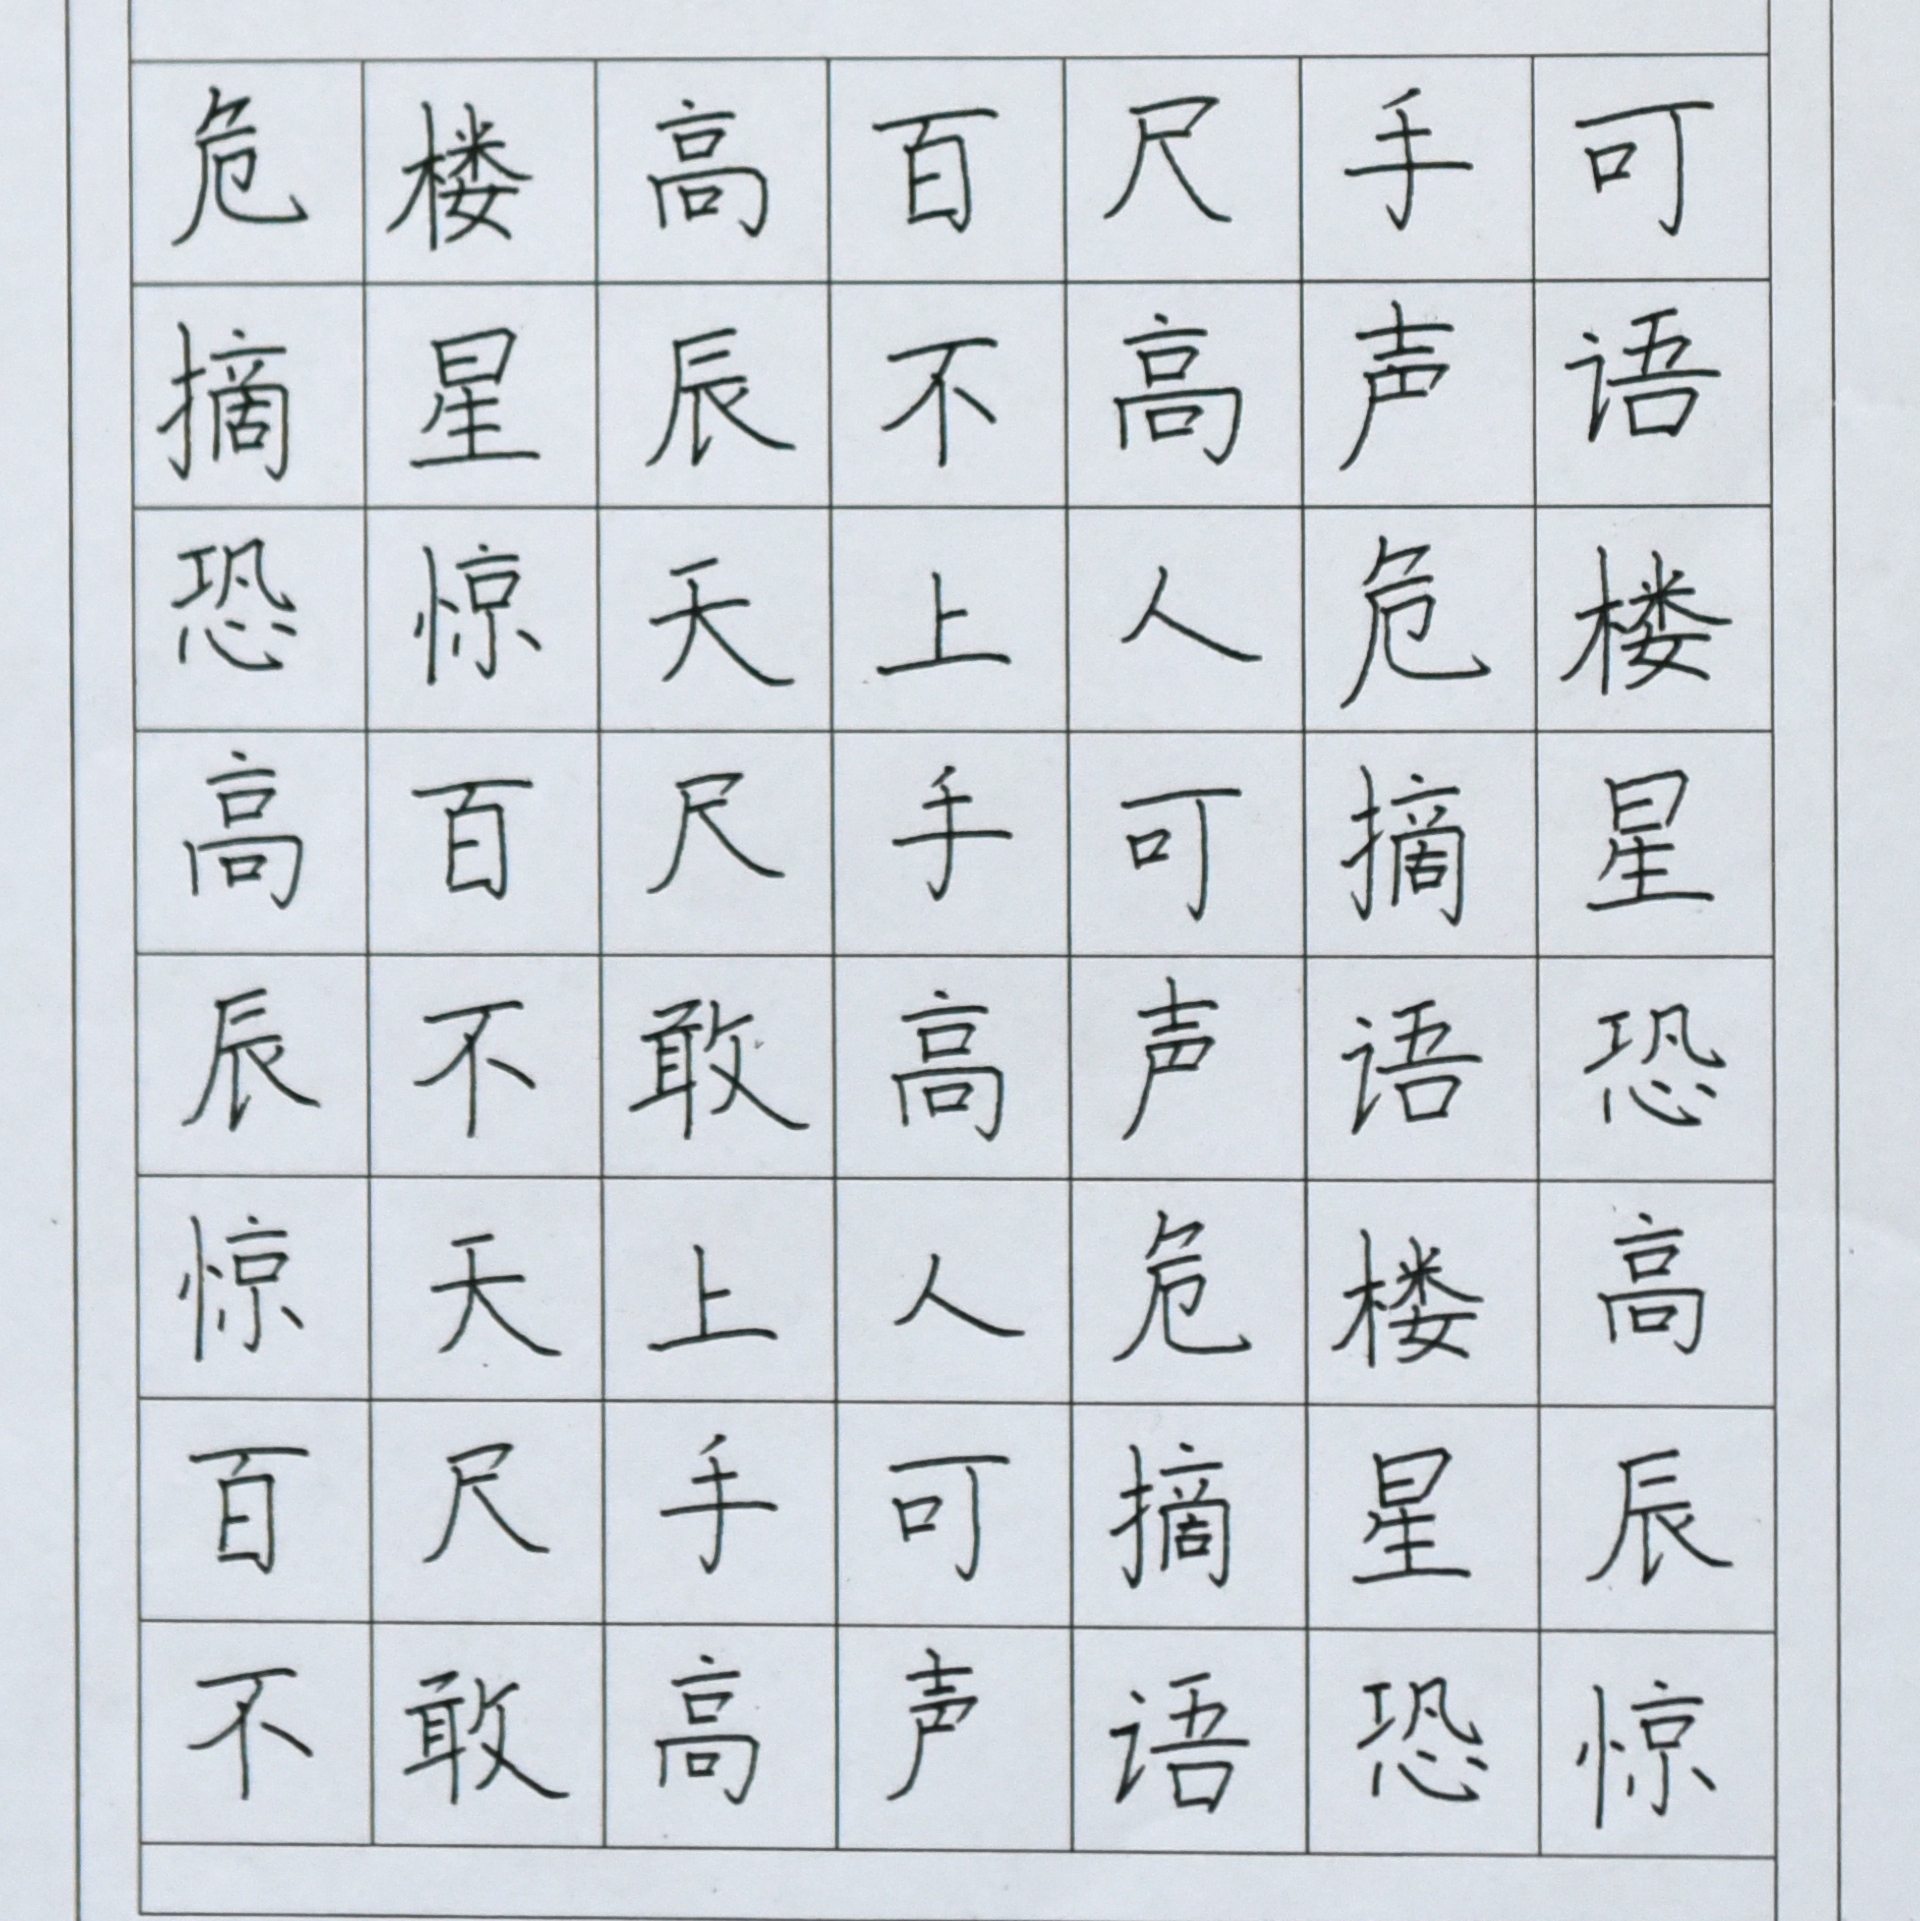 危楼高百尺手可
摘星辰不高声语
恐惊天上人危楼
高百尺手可摘星
辰不敢高声语恐
惊天上人危楼高
百尺手可摘星辰
不敢高声语恐惊